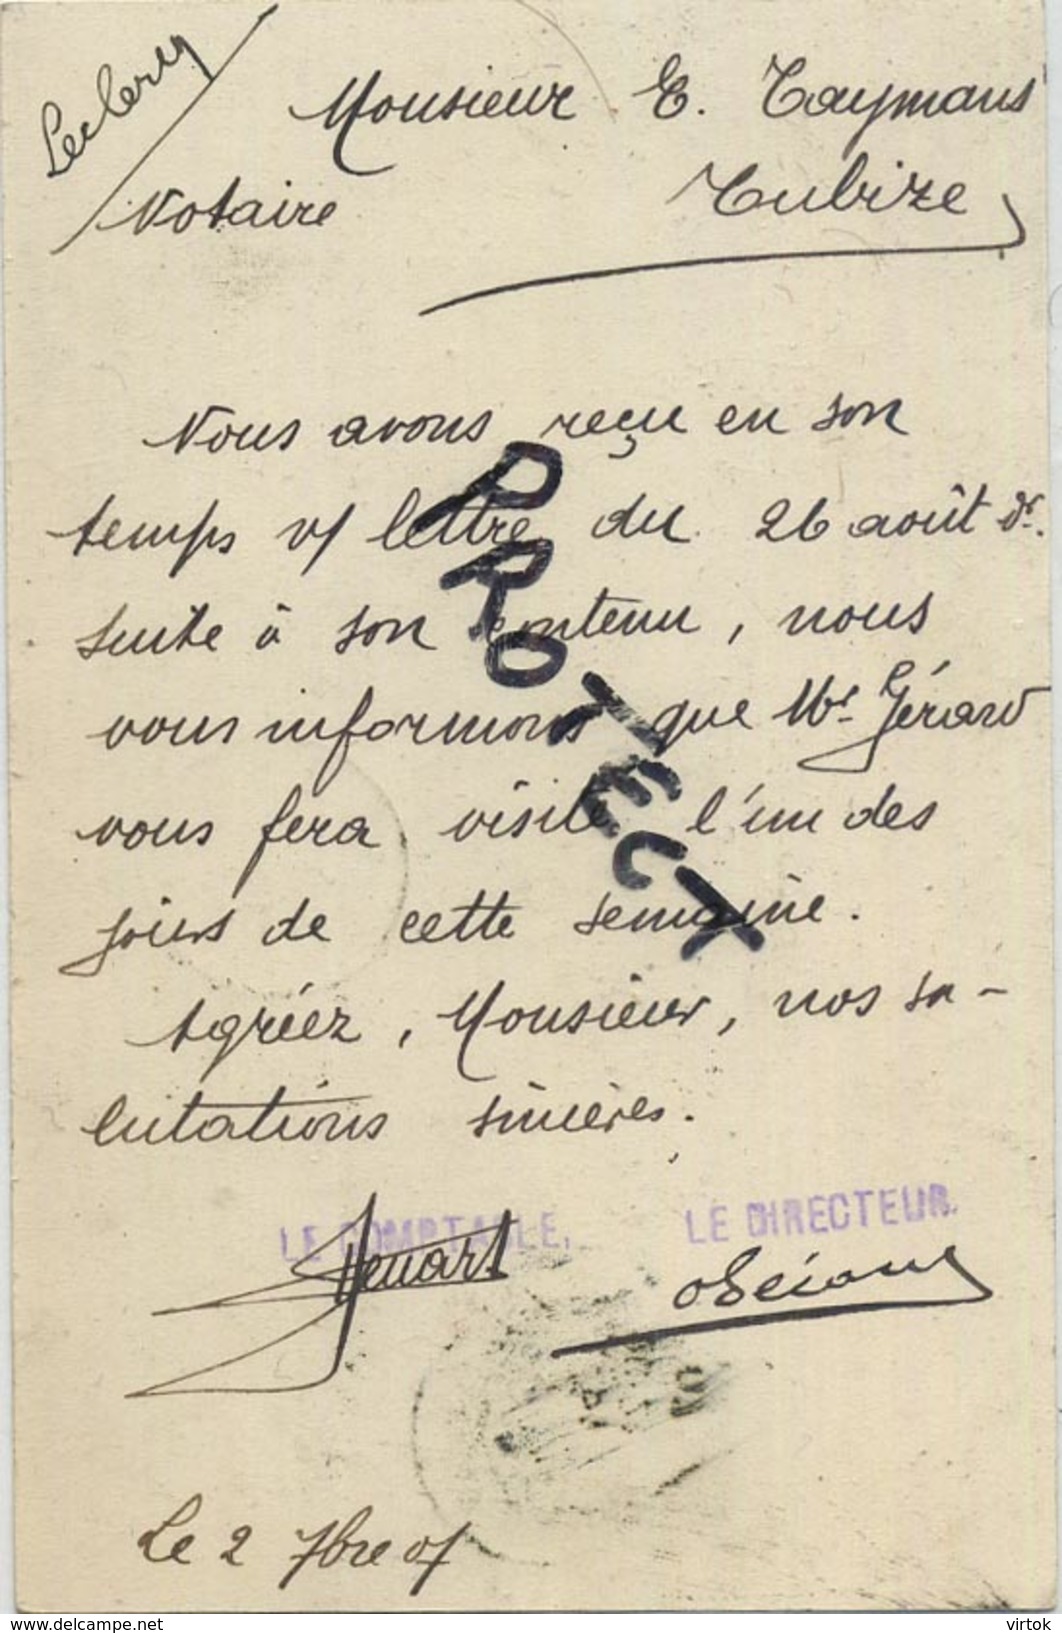 Leclercq
Monsieur E. Taymans
Notaire Tubize
Nous avons reçu en son
temps v/ lettre du 26 août dr.
suite à son contenu, nous
vous informons que Mr. Gérard
vous fera visite l'un des
jours de cette semaine.
Agréez, Monsieur, nos sa-
lutations sincères.
PROTECT
LE COMPTABLE, LE DIRECTEUR,
Henart
Le 2 7bre 07
delcampe.net virtok